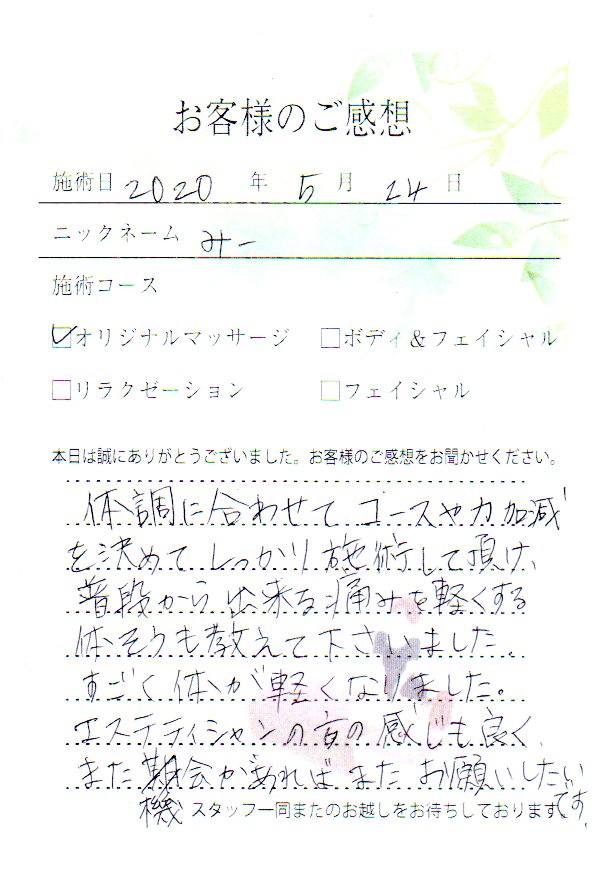 お客様のご感想
施術日 2020 年 5 月 24 日
ニックネーム みー
施術コース
オリジナルマッサージ ボディ&フェイシャル
リラクゼーション フェイシャル
本日は誠にありがとうございました。お客様のご感想をお聞かせください。
体調に合わせて コースや力加減
を決めて しっかり施術して頂け、
普段から出来る痛みを軽くする
体そうも教えて下さいました。
すごく体が軽くなりました。
エステティシャンの方の感じも良く、
また機会があれば また お願いしたい
です。
スタッフ一同またのお越しをお待ちしております